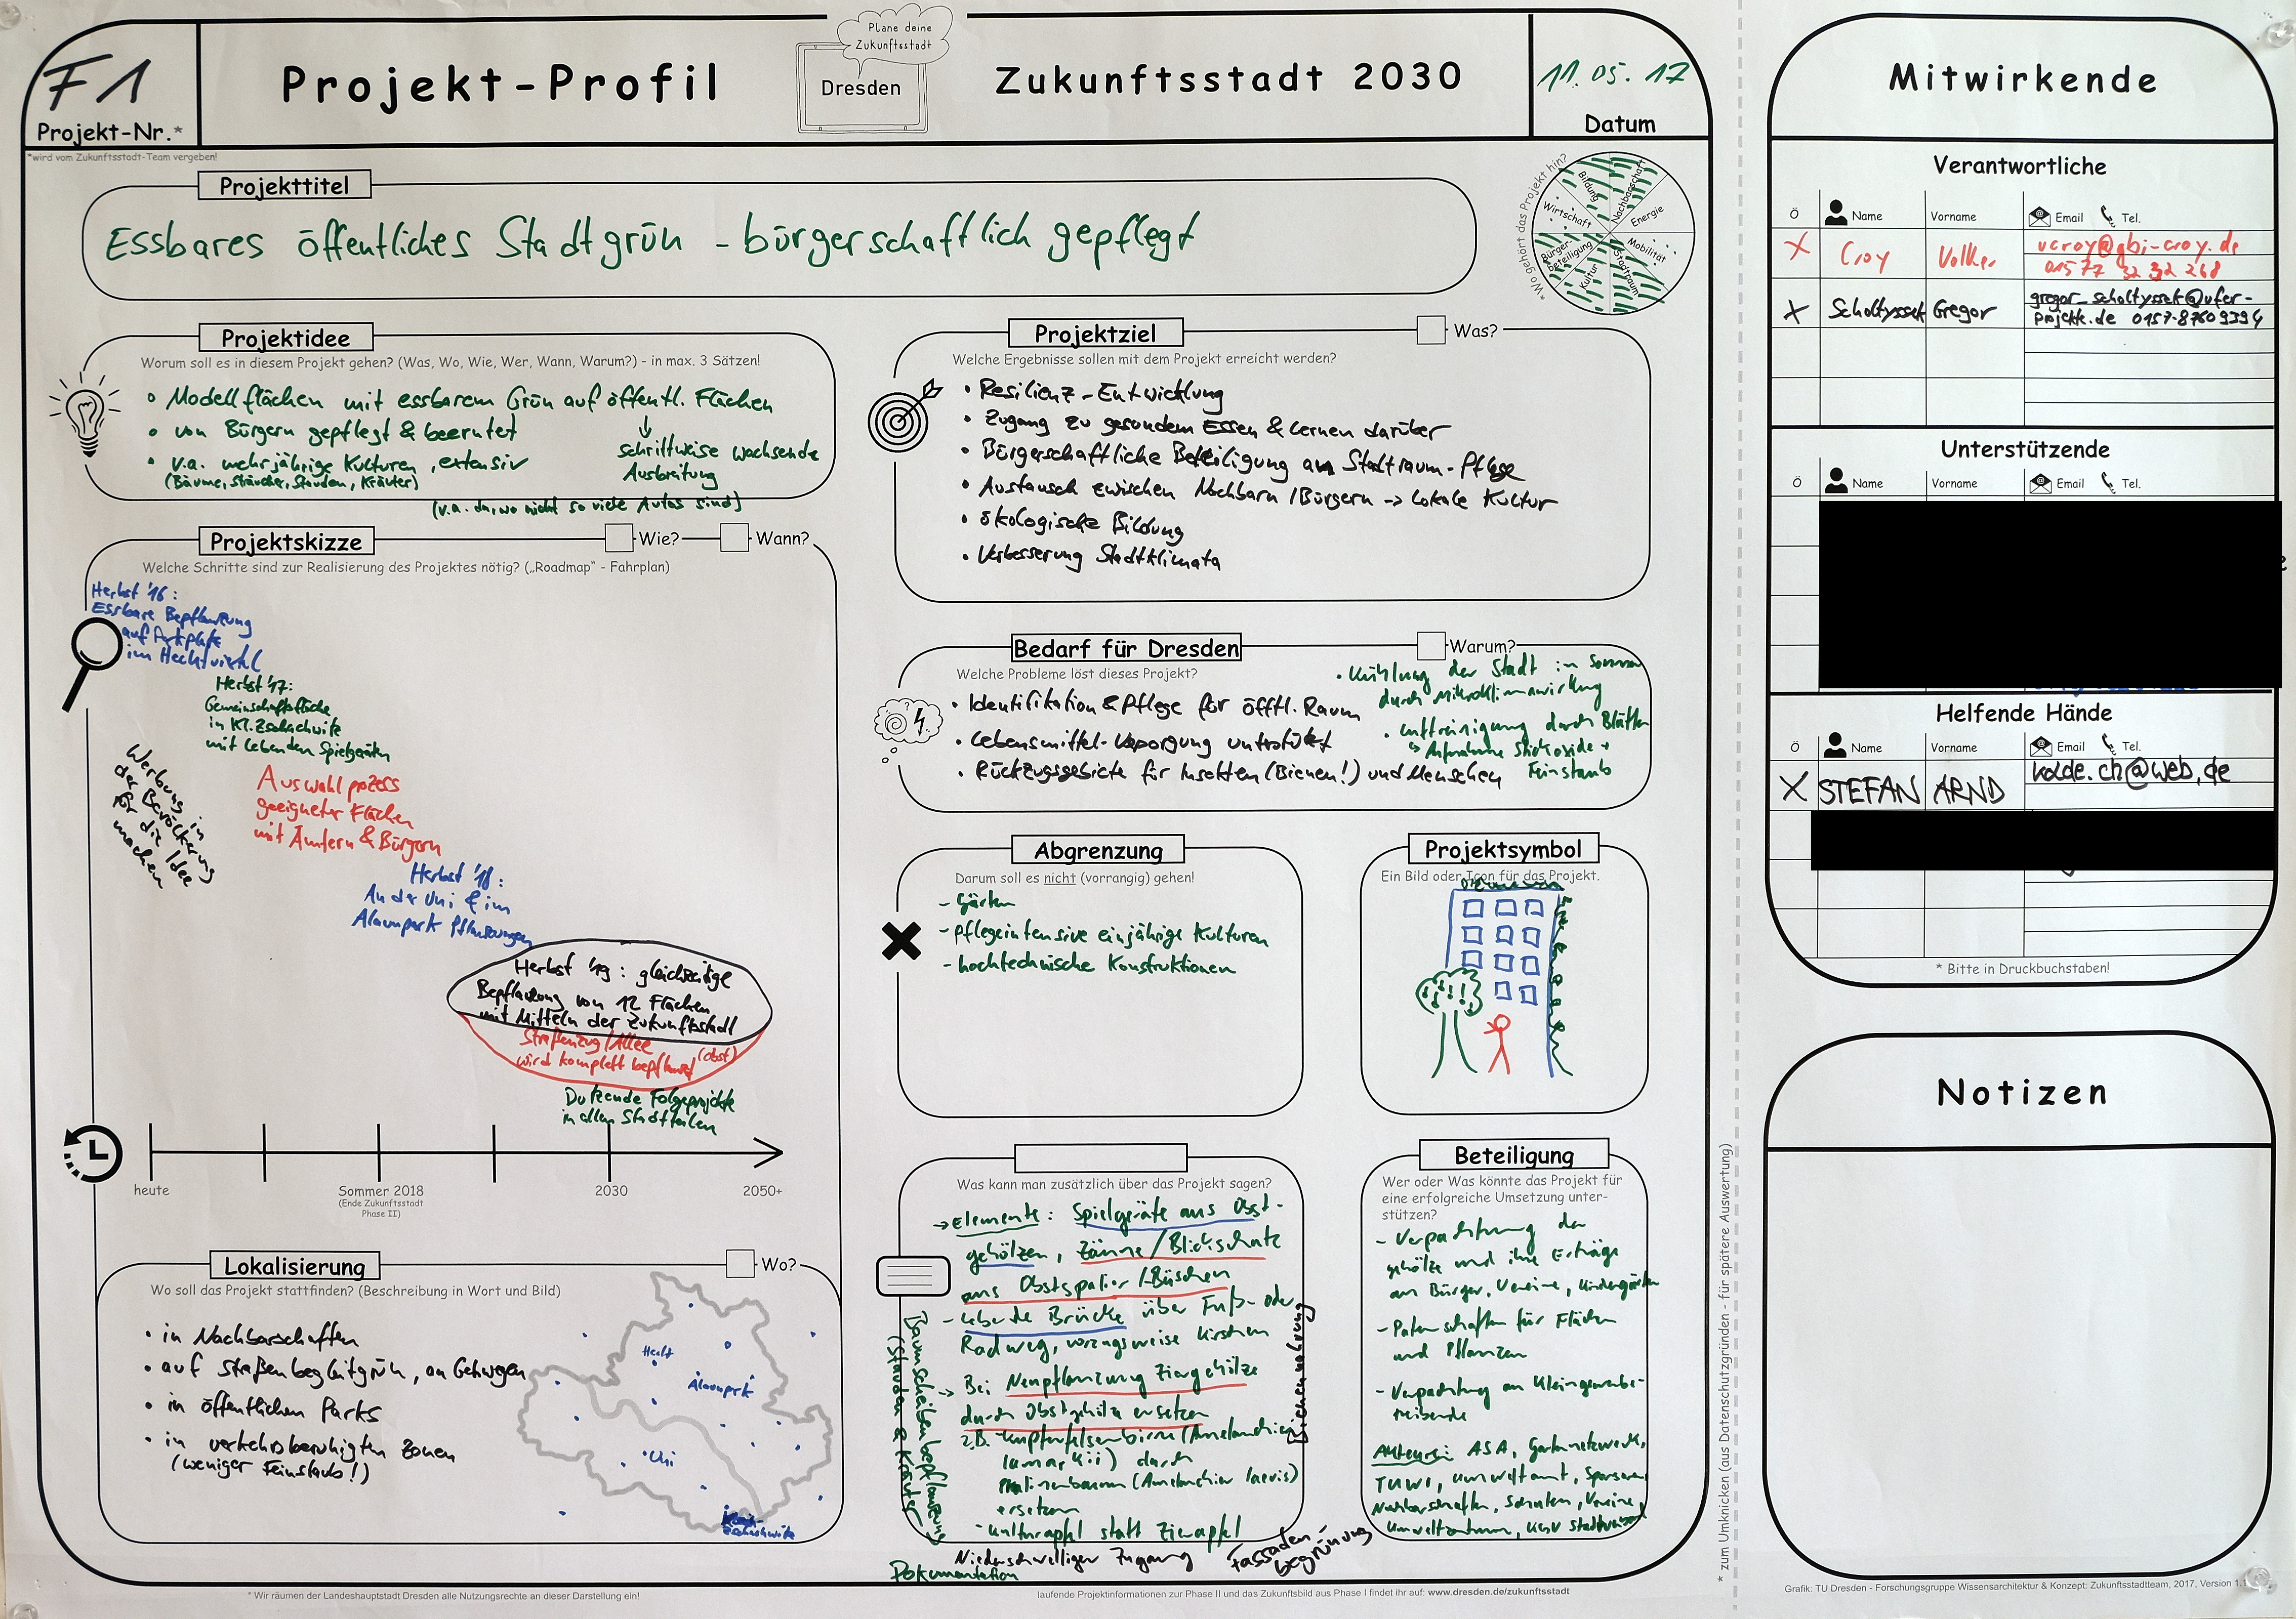 F1
Projekt-Nr.*
*wird vom Zukunftsstadt-Team vergeben!
Projekt-Profil
Plane deine
Zukunftsstadt
Dresden
Zukunftsstadt 2030
11.05.17
Datum
Projekttitel
Essbares öffentliches Stadtgrün - bürgerschaftlich gepflegt
*Wo gehört das Projekt hin?
Bildung
Nachbarschaft
Energie
Mobilität
Stadtraum
Kultur
Bürger-
beteiligung
Wirtschaft
Projektidee
Worum soll es in diesem Projekt gehen? (Was, Wo, Wie, Wer, Wann, Warum?) - in max. 3 Sätzen!
• Modellflächen mit essbarem Grün auf öffentl. Flächen
• von Bürgern gepflegt & beerntet
• v.a. mehrjährige Kulturen, extensiv
(Bäume, Sträucher, Stauden, Kräuter)
↓
schrittweise wachsende
Ausbreitung
(v.a. da, wo nicht so viele Autos sind)
Projektskizze
Wie?
Wann?
Welche Schritte sind zur Realisierung des Projektes nötig? („Roadmap" - Fahrplan)
Herbst '16:
Essbare Bepflanzung
auf Parkplatz
im Hechtviertel
Herbst '17:
Gemeinschaftsfläche
in Kl. Zschachwitz
mit lebenden Spielgeräten
Werbung in
der Bevölkerung
für die Idee
machen
Auswahlprozess
geeigneter Flächen
mit Ämtern & Bürgern
Herbst '18:
An der Uni & im
Alaunpark Pflanzungen
Herbst '19: gleichzeitige
Bepflanzung von 12 Flächen
mit Mitteln der Zukunftsstadt
Straßenzug/Allee
(Obst)
wird komplett bepflanzt
Dutzende Folgeprojekte
in allen Stadtteilen
heute
Sommer 2018
(Ende Zukunftsstadt
Phase II)
2030
2050+
Lokalisierung
Wo?
Wo soll das Projekt stattfinden? (Beschreibung in Wort und Bild)
• in Nachbarschaften
• auf Straßenbegleitgrün, an Gehwegen
• in öffentlichen Parks
• in verkehrsberuhigten Zonen
(weniger Feinstaub!)
Hecht
Alaunpark
Uni
Klein-
zschachwitz
Projektziel
Was?
Welche Ergebnisse sollen mit dem Projekt erreicht werden?
• Resilienz-Entwicklung
• Zugang zu gesundem Essen & Lernen darüber
• Bürgerschaftliche Beteiligung an Stadtraum-Pflege
• Austausch zwischen Nachbarn/Bürgern → Lokale Kultur
• ökologische Bildung
• Verbesserung Stadtklimata
Bedarf für Dresden
Warum?
Welche Probleme löst dieses Projekt?
• Identifikation & Pflege für öfftl. Raum
• Lebensmittel-Versorgung unterstützt
• Rückzugsgebiete für Insekten (Bienen!) und Menschen
• Kühlung der Stadt im Sommer
durch Mikroklimawirkung
• Luftreinigung durch Blätter
↳ Aufnahme Stickoxide +
Feinstaub
Abgrenzung
Darum soll es nicht (vorrangig) gehen!
- Gärten
- pflegeintensive einjährige Kulturen
- hochtechnische Konstruktionen
Projektsymbol
Ein Bild oder Icon für das Projekt.
Was kann man zusätzlich über das Projekt sagen?
→ Elemente: Spielgeräte aus Obst-
gehölzen, Zäune/Blickschutz
aus Obstspalier/-Büschen
- Lebende Brücke über Fuß- oder
Radweg, vorzugsweise Kirschen
→ Bei Neupflanzung Ziergehölze
durch Obstgehölz ersetzen
z.B. - Kupferfelsenbirne (Amelanchier
lamarkii) durch
(Amelanchier laevis)
ersetzen
- Kulturapfel statt Zierapfel
Baumscheibenbepflanzung
(Stauden & Kräuter)
Bienennahrung
Niederschwelliger Zugang
Fassaden-
begrünung
Dokumentation
Beteiligung
Wer oder Was könnte das Projekt für
eine erfolgreiche Umsetzung unter-
stützen?
- Verpachtung der
Gehölze und ihre Erträge
an Bürger, Vereine, Kindergärten
- Patenschaften für Flächen
und Pflanzen
- Verpachtung an Kleingewerbe-
treibende
Akteure: ASA, Gartennetzwerk,
TUWI, Umweltamt, Sponsoren
Nachbarschaften, Schulen, Vereine,
Umweltzentrum,
* Wir räumen der Landeshauptstadt Dresden alle Nutzungsrechte an dieser Darstellung ein!
laufende Projektinformationen zur Phase II und das Zukunftsbild aus Phase I findet ihr auf: www.dresden.de/zukunftsstadt
* zum Umknicken (aus Datenschutzgründen - für spätere Auswertung)
Mitwirkende
Verantwortliche
Ö Name Vorname Email Tel.
X Croy Volker vcroy@gbi-croy.de
01577 32 32 268
X Scholtyssek Gregor gregor_scholtyssek@ufer-
projekte.de 0157-87609394
Unterstützende
Ö Name Vorname Email Tel.
Helfende Hände
Ö Name Vorname Email Tel.
X STEFAN ARND kolde.ch@web.de
* Bitte in Druckbuchstaben!
Notizen
Grafik: TU Dresden - Forschungsgruppe Wissensarchitektur & Konzept: Zukunftsstadtteam, 2017, Version 1.1